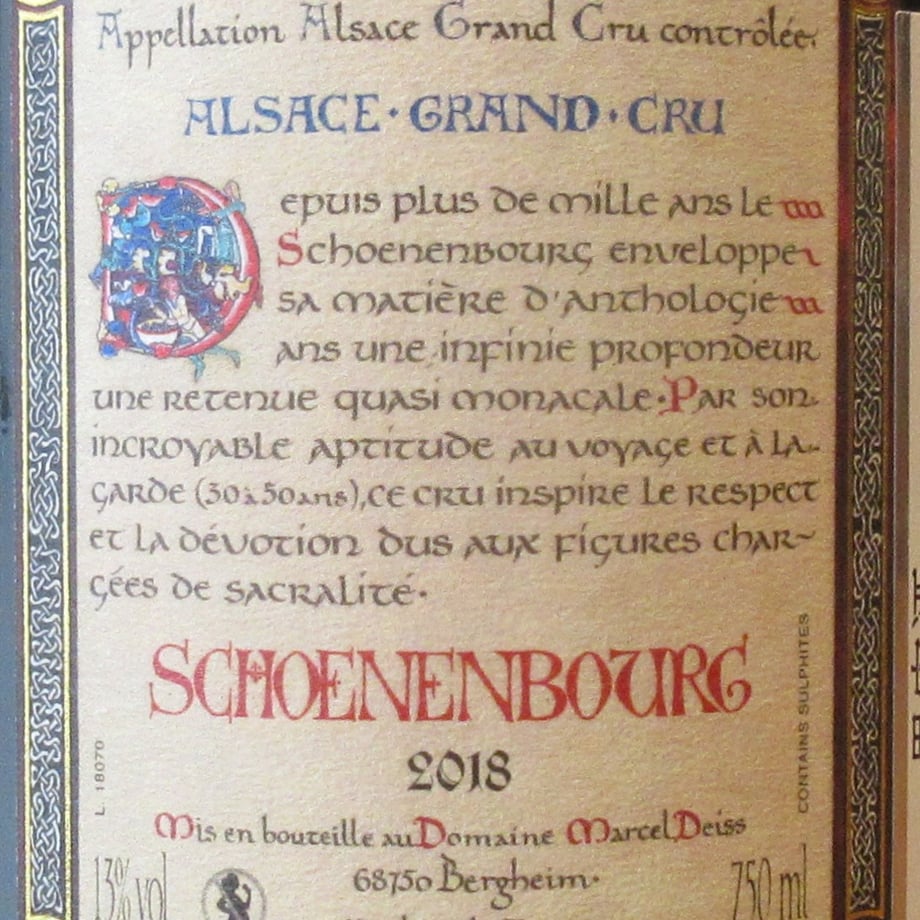 Appellation Alsace Grand Cru contrôlée.
ALSACE·GRAND·CRU
Depuis plus de mille ans le
Schoenenbourg enveloppe
sa matière d'anthologie
ans une infinie profondeur
une retenue quasi monacale·Par son
incroyable aptitude au voyage et à la
garde (30à50ans),ce cru inspire le respect
et la dévotion dus aux figures char~
gées de sacralité·
SCHOENENBOURG
2018
L. 18070
CONTAINS SULPHITES
Mis en bouteille au Domaine Marcel Deiss
13% vol
68750 Bergheim·
750 ml